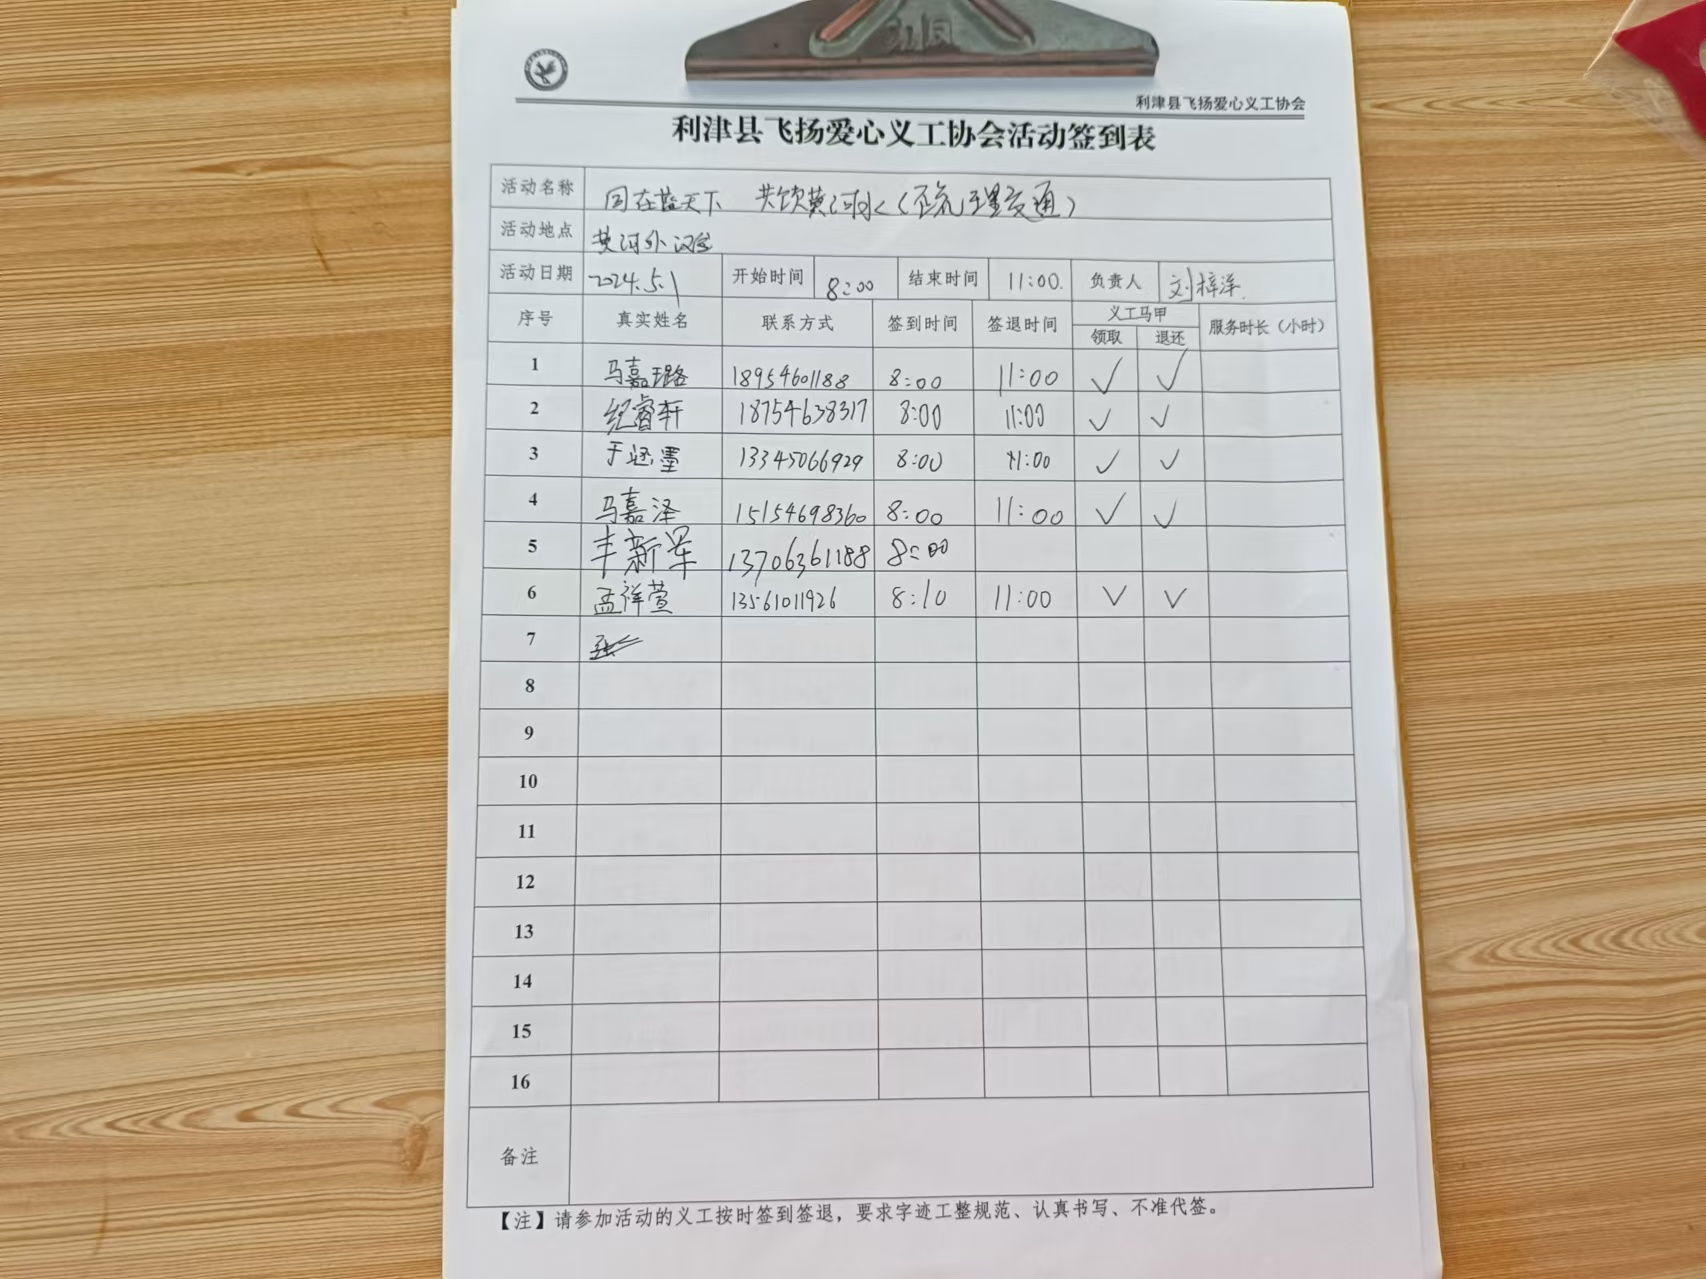 利津县飞扬爱心义工协会
利津县飞扬爱心义工协会活动签到表
活动名称 同在蓝天下 共饮黄河水（疏理交通）
活动地点 黄河外滩
活动日期 2024.5.1 开始时间 8:00 结束时间 11:00. 负责人 刘梓洋
序号 真实姓名 联系方式 签到时间 签退时间 义工马甲 领取 退还 服务时长（小时）
1 马嘉璐 18954601188 8:00 11:00 ✓ ✓
2 纪睿轩 18754638317 8:00 11:00 ✓ ✓
3 于涵墨 13345066929 8:00 11:00 ✓ ✓
4 马嘉泽 15154698360 8:00 11:00 ✓ ✓
5 丰新军 13706361188 8:00
6 孟祥萱 13561011926 8:10 11:00 ✓ ✓
7
8
9
10
11
12
13
14
15
16
备注
【注】请参加活动的义工按时签到签退，要求字迹工整规范、认真书写、不准代签。